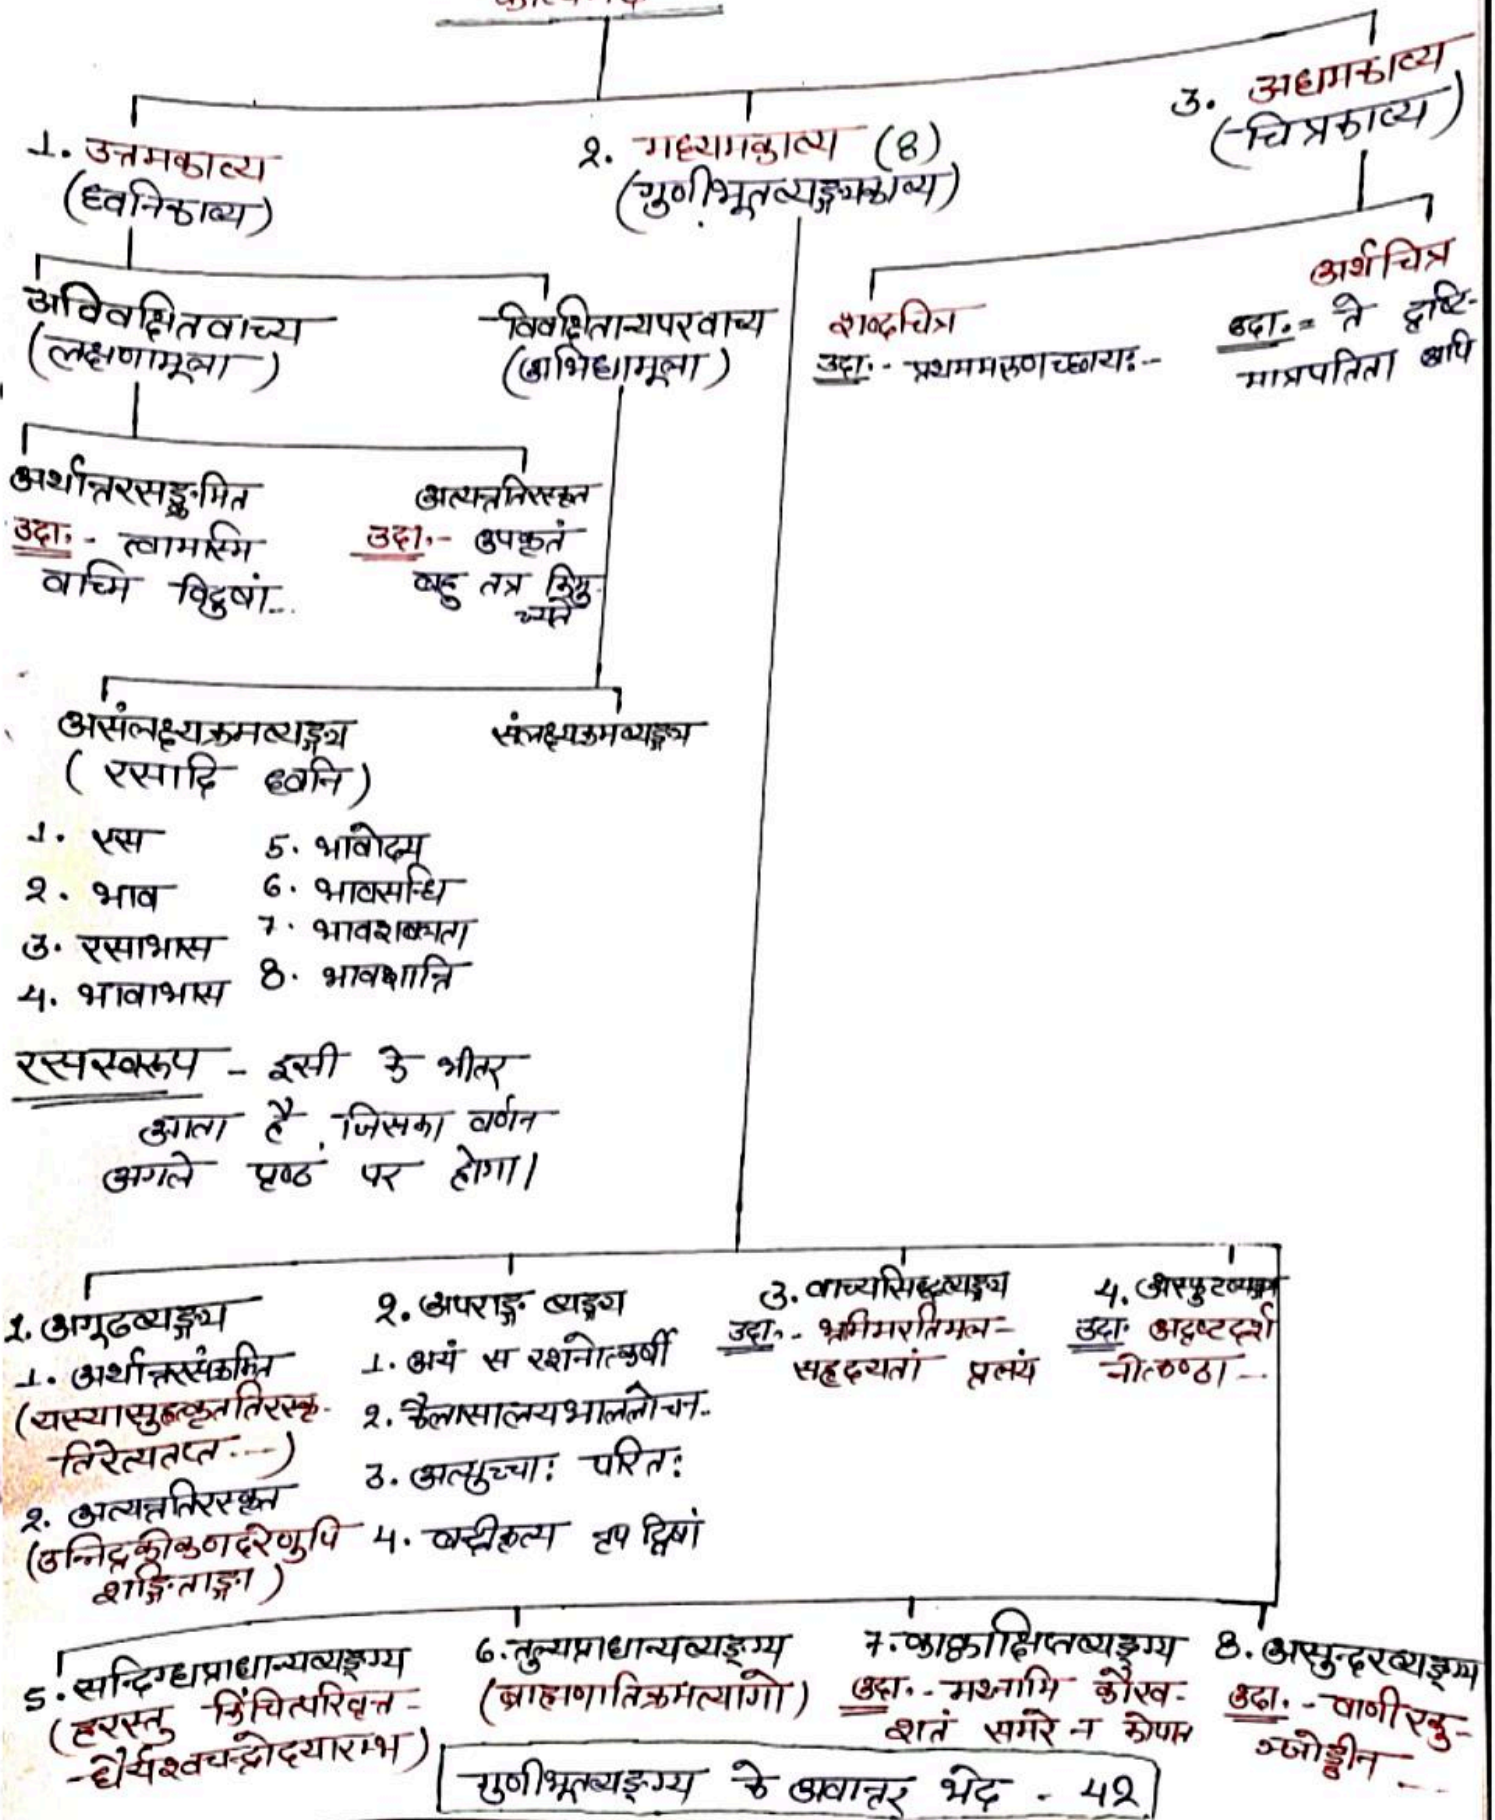 1. उत्तमकाव्य
(ध्वनिकाव्य)
2. मध्यमकाव्य (8)
(गुणीभूतव्यङ्ग्यकाव्य)
3. अधमकाव्य
(चित्रकाव्य)
अविवक्षितवाच्य
(लक्षणामूला)
विवक्षितान्यपरवाच्य
(अभिधामूला)
शब्दचित्र
उदा.- प्रथममरुणच्छायः-
अर्थचित्र
उदा.= ते दृष्टि-
मात्रपतिता अपि
अर्थान्तरसङ्क्रमित
उदा.- त्वामस्मि
वाच्मि विदुषां...
अत्यन्ततिरस्कृत
उदा.- उपकृतं
बहु तत्र किमु-
च्यते
असंलक्ष्यक्रमव्यङ्ग्य
(रसादि ध्वनि)
संलक्ष्यक्रमव्यङ्ग्य
1. रस
2. भाव
3. रसाभास
4. भावाभास
5. भावोदय
6. भावसन्धि
7. भावशबलता
8. भावशान्ति
रसस्वरूप - इसी के भीतर
आता है, जिसका वर्णन
अगले पृष्ठ पर होगा।
1. अगूढव्यङ्ग्य
1. अर्थान्तरसंक्रमित
(यस्यासुहृत्कृततिरस्कृ-
तिरेत्यतप्त...)
2. अत्यन्ततिरस्कृत
(उन्निद्रकोकनदरेणुपि
शङ्गिताङ्गा)
2. अपराङ्ग व्यङ्ग्य
1. अयं स रशनोत्कर्षी
2. कैलासालयभाललोचन..
3. अत्युच्चाः परितः
4. बन्दीकृत्य नृप द्विषां
3. वाच्यसिद्धव्यङ्ग्य
उदा.- भ्रमिमरतिमल-
सहृदयतां प्रलयं
4. अस्फुटव्यङ्ग्य
उदा. अदृष्टदर्श
नोत्कण्ठा --
5. सन्दिग्धप्राधान्यव्यङ्ग्य
(हरस्तु किंचित्परिवृत्त-
-धैर्यश्वचन्द्रोदयारम्भ)
6. तुल्यप्राधान्यव्यङ्ग्य
(ब्राह्मणातिक्रमत्यागो)
7. काक्वाक्षिप्तव्यङ्ग्य
उदा.- मथ्नामि कौरव-
शतं समरे न कोपात
8. असुन्दरव्यङ्ग्य
उदा.- वाणीरकु-
ञ्जोड्डीन --
गुणीभूतव्यङ्ग्य के अवान्तर भेद - 42